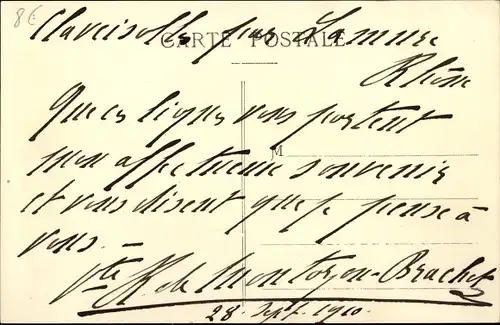 8€
Claveisolles par Lamure
CARTE POSTALE
Rhône
Que ces lignes vous portent
M
mon affectueux souvenir
et vous disent que je pense à
vous. –
Vte H. de Montozon-Brachet
28 Sept. 1910.